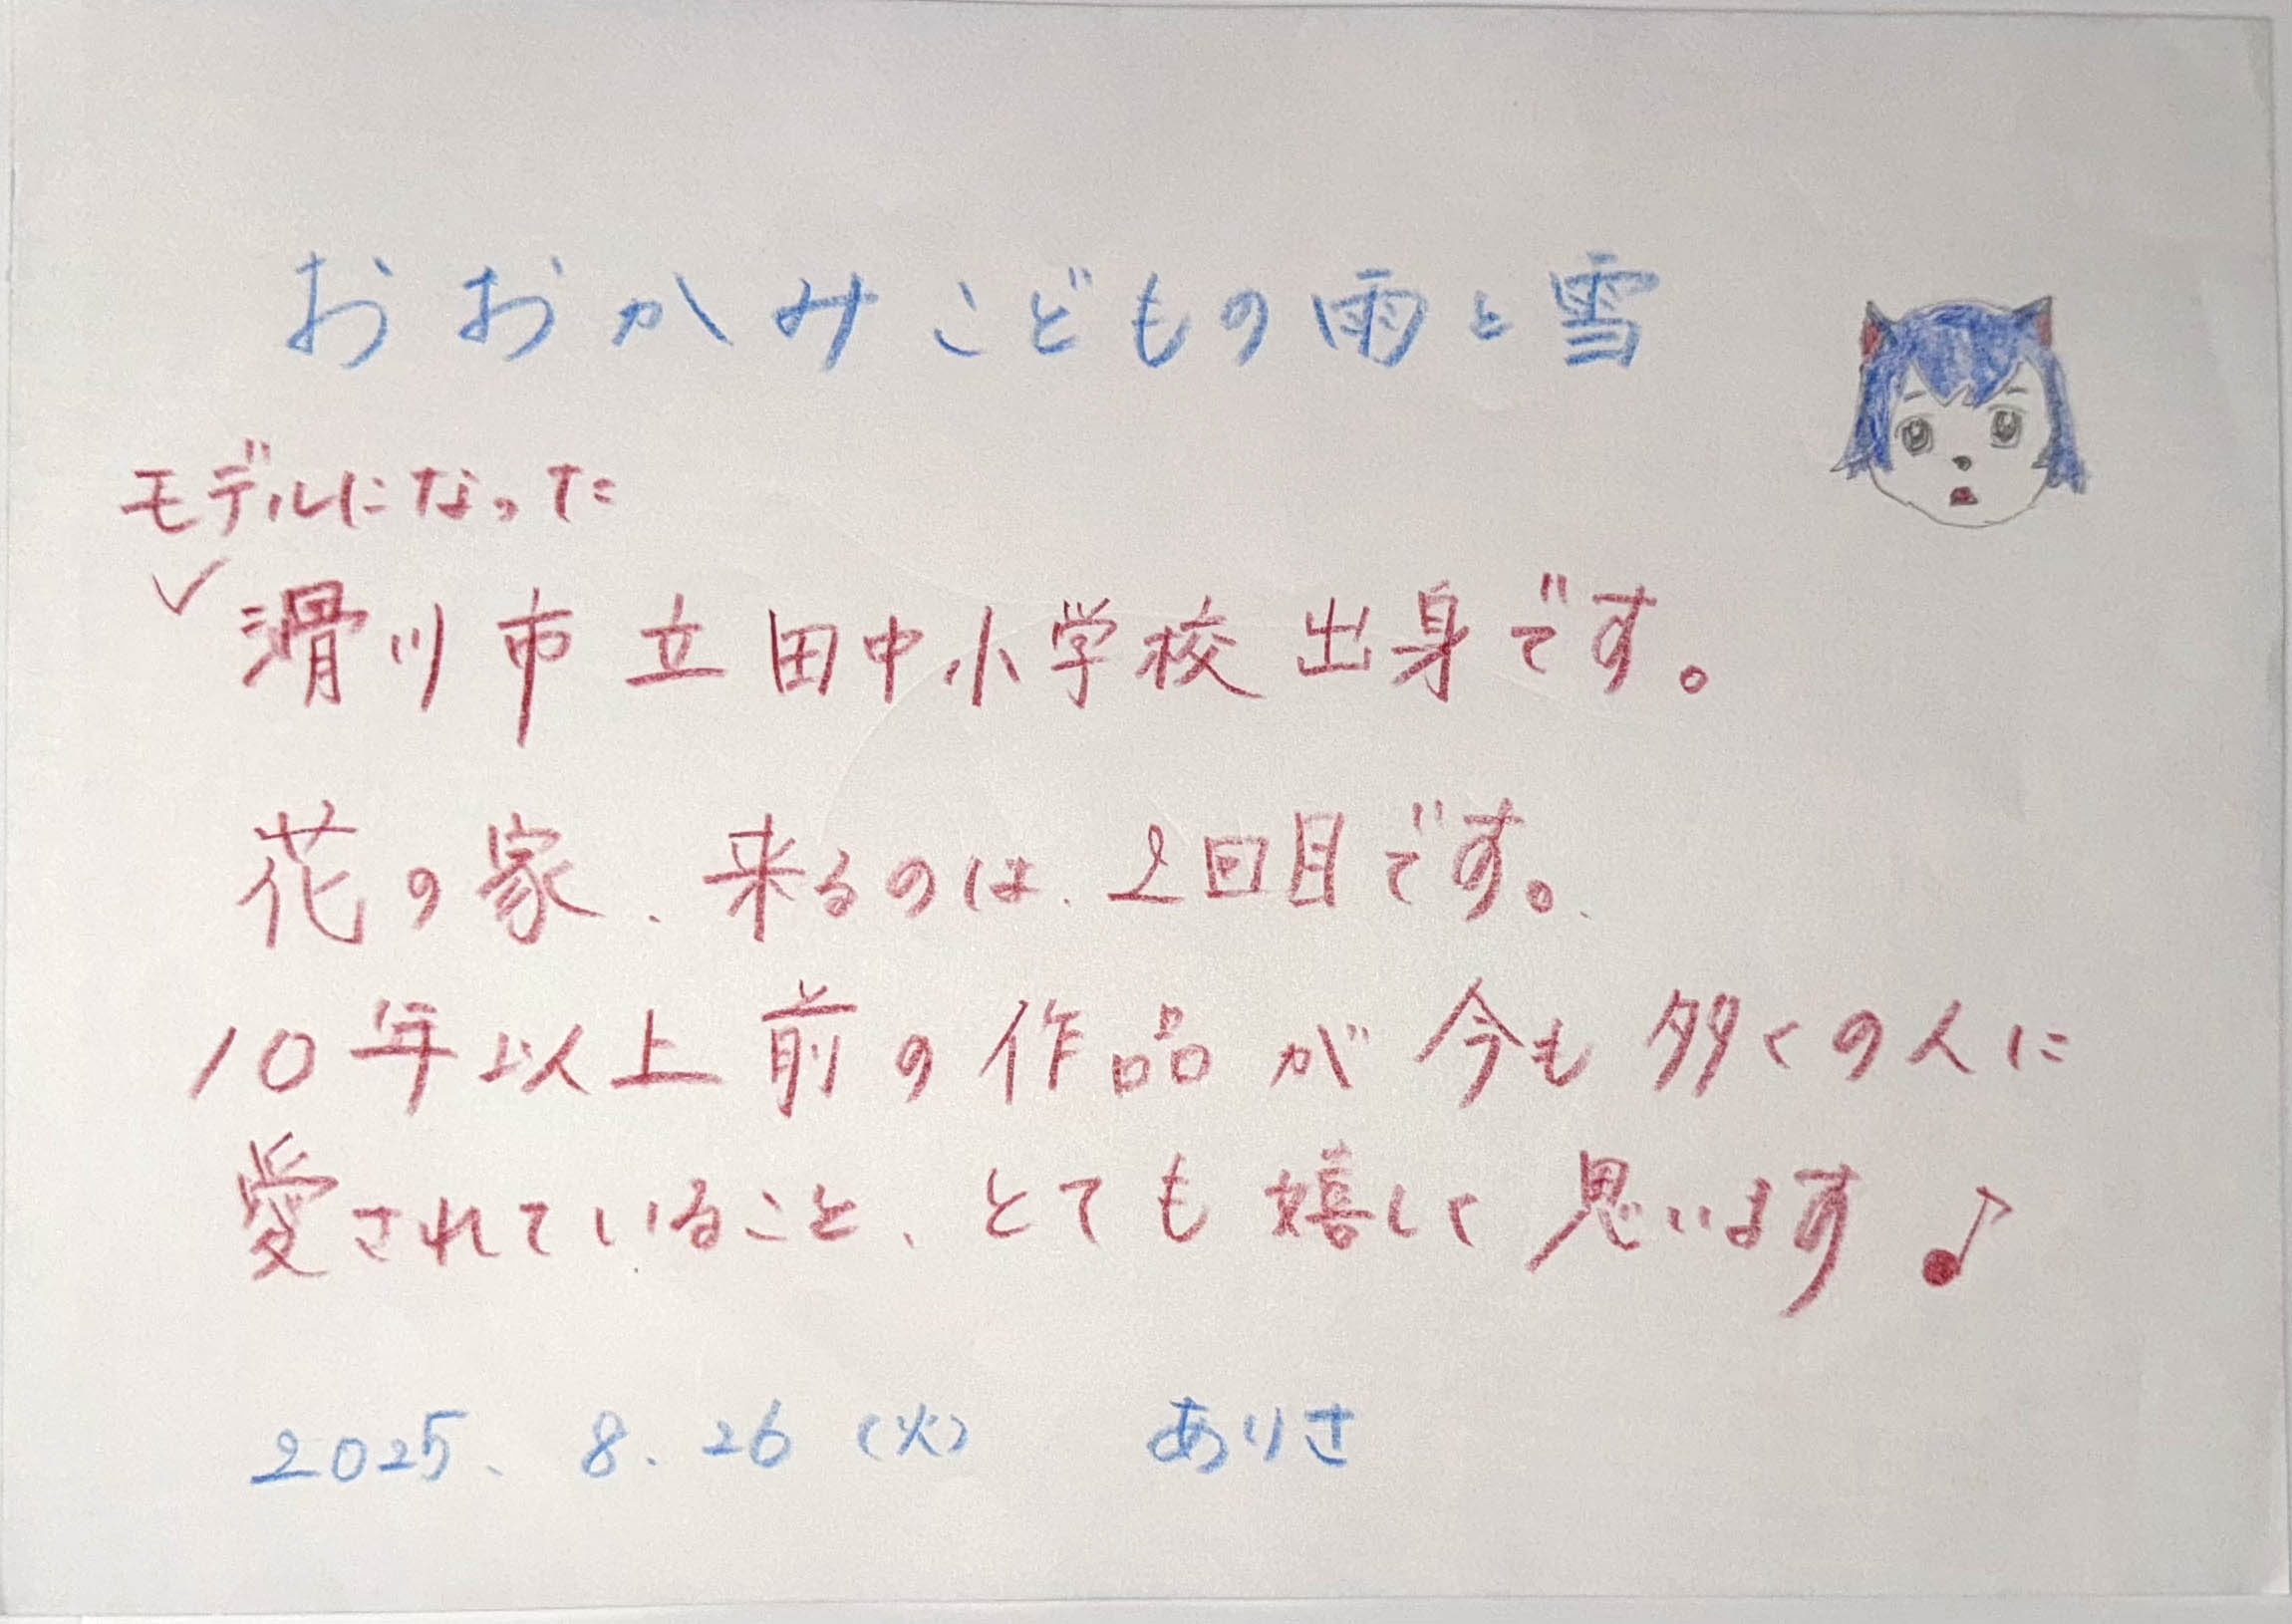 おおかみこどもの雨と雪
モデルになった
✓滑川市立田中小学校出身です。
花の家、来るのは、2回目です。
10年以上前の作品が今も多くの人に
愛されていること、とても嬉しく思います♪
2025. 8. 26 (火) ありさ